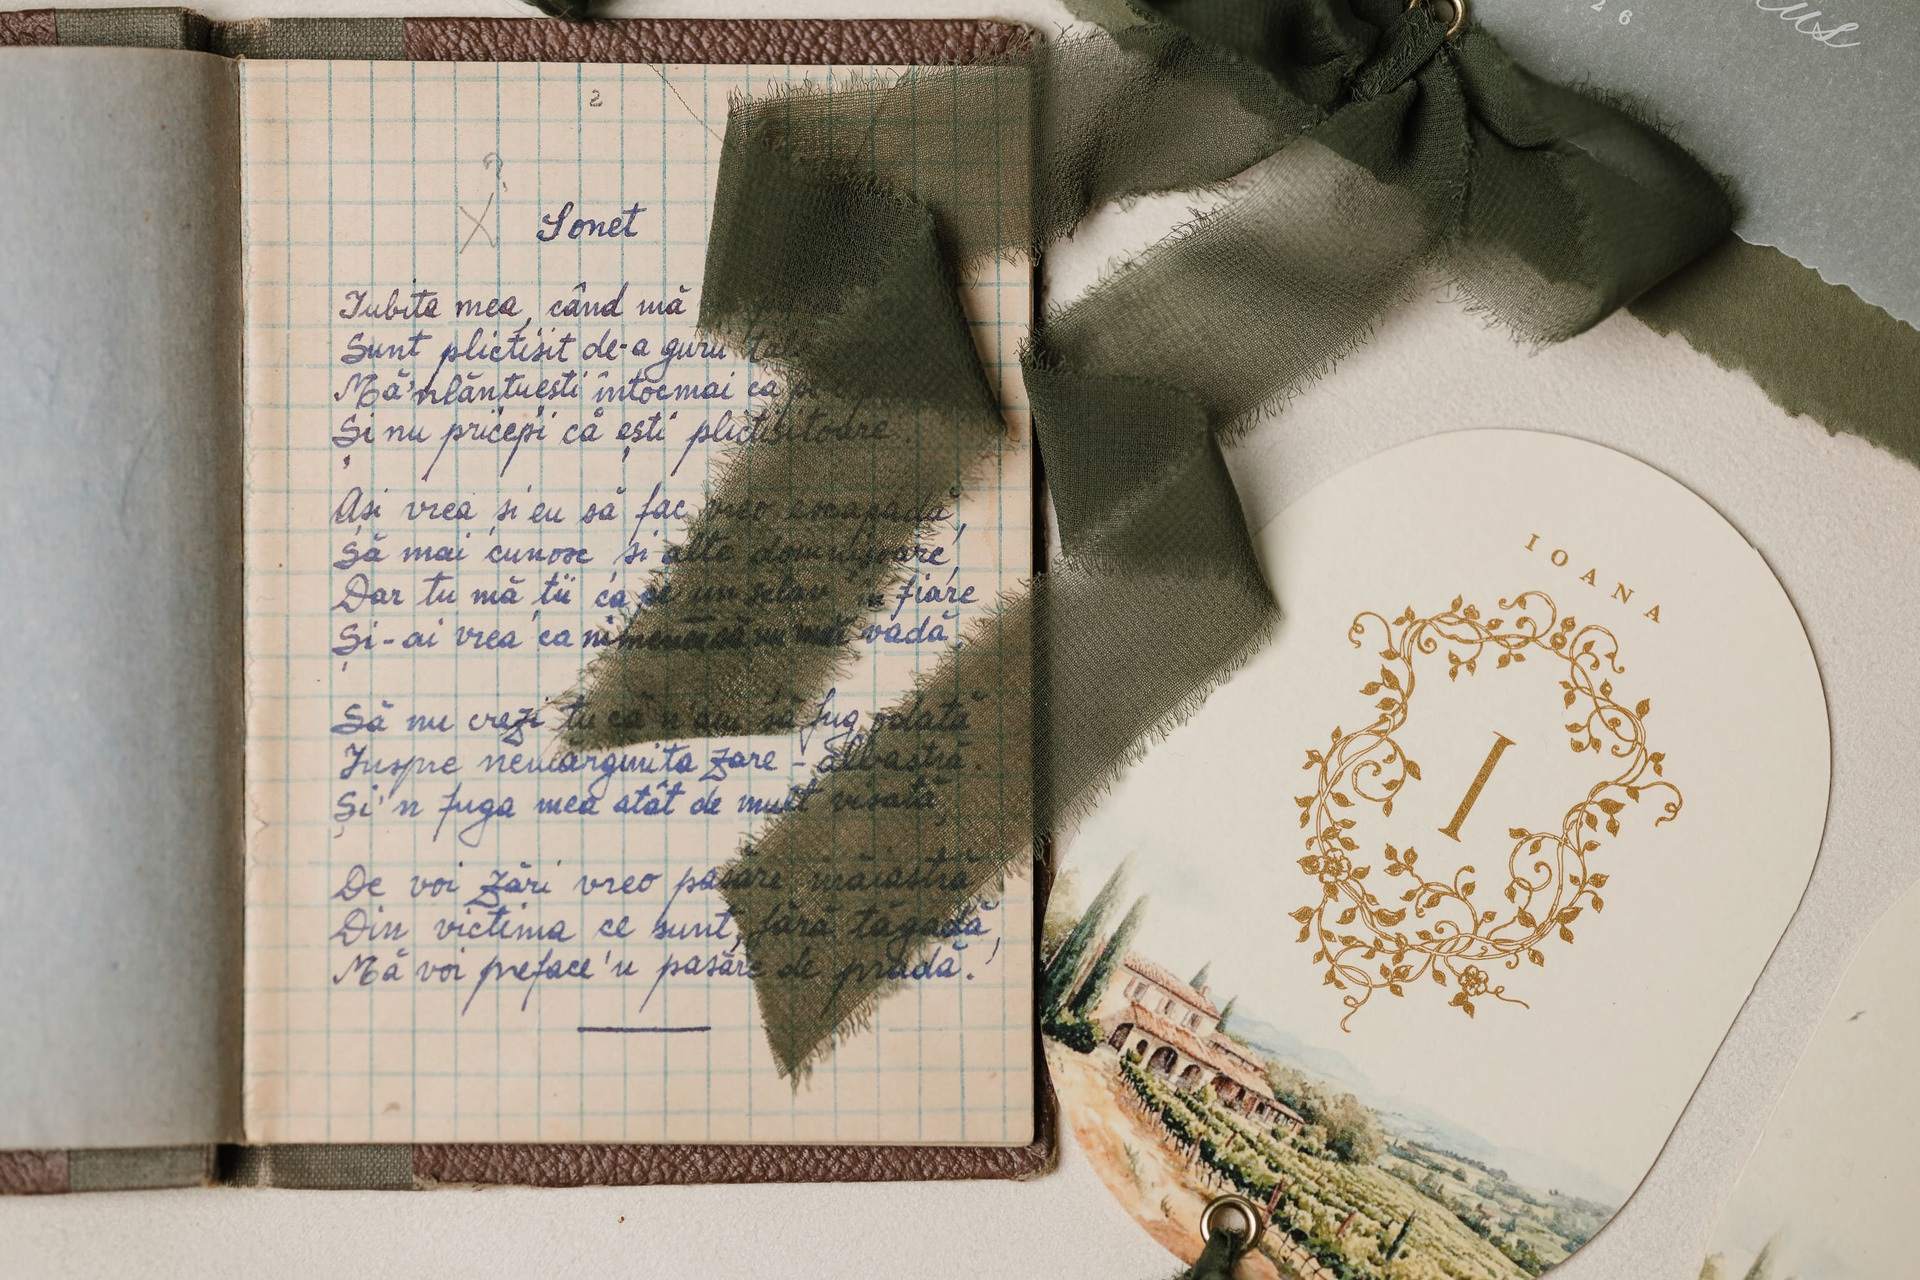 2
Sonet
Iubita mea, când mă
Sunt plictisit de-a gurii tale
Mă'nlănțuești întocmai ca pe
Și nu pricepi că ești plictisitoare.
Ași vrea și eu să fac vreo escapadă,
Să mai cunosc și alte domnișoare,
Dar tu mă ții ca pe un sclav în fiare
Și-ai vrea ca nimenea să nu mă vadă.
Să nu crezi tu că n'am să fug odată
Înspre nemărginita zare-albastră.
Și'n fuga mea atât de mult visată,
De voi zări vreo pasăre măiastră
Din victima ce sunt, fără tăgadă,
Mă voi preface'n pasăre de pradă!
26
IOANA
I